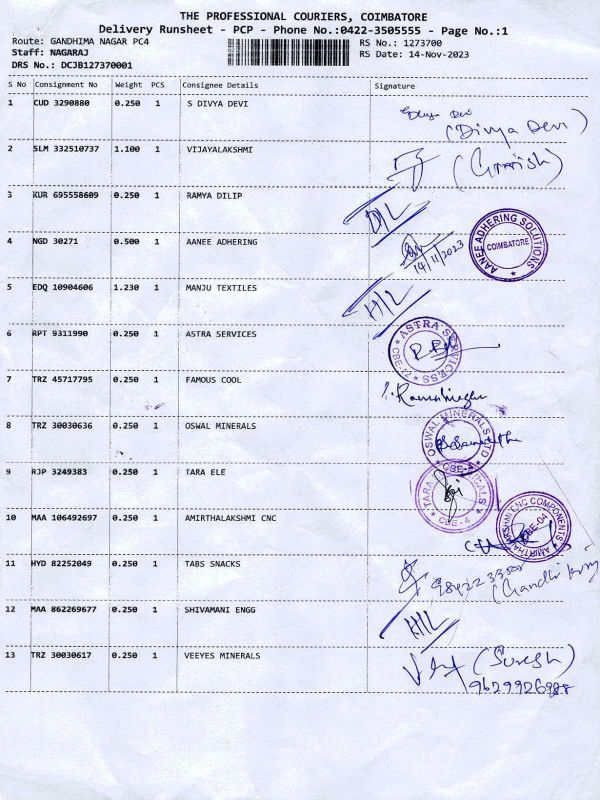 THE PROFESSIONAL COURIERS, COIMBATORE
Delivery Runsheet - PCP - Phone No.:0422-3505555 - Page No.:1
Route: GANDHIMA NAGAR PC4 RS No.: 1273700
Staff: NAGARAJ RS Date: 14-Nov-2023
DRS No.: DCJB127370001
S No Consignment No Weight PCS Consignee Details Signature
1 CUD 3290880 0.250 1 S DIVYA DEVI
(Divya Devi)
2 SLM 332510737 1.100 1 VIJAYALAKSHMI
3 KUR 695558609 0.250 1 RAMYA DILIP
4 NGD 30271 0.500 1 AANEE ADHERING
14/11/2023
AANEE ADHERING SOLUTIONS
COIMBATORE
5 EDQ 10904606 1.230 1 MANJU TEXTILES
6 RPT 9311990 0.250 1 ASTRA SERVICES
ASTRA SERVICESS
7 TRZ 45717795 0.250 1 FAMOUS COOL
8 TRZ 30030636 0.250 1 OSWAL MINERALS
OSWAL MINERALS LTD
CBE-4
9 RJP 3249383 0.250 1 TARA ELE
TARA
CBE-4
10 MAA 106492697 0.250 1 AMIRTHALAKSHMI CNC
AMIRTHALAKSHMI CNC COMPONENTS
CBE-04
11 HYD 82252049 0.250 1 TABS SNACKS
12 MAA 862269677 0.250 1 SHIVAMANI ENGG
13 TRZ 30030617 0.250 1 VEEYES MINERALS
(Suresh)
9629926988